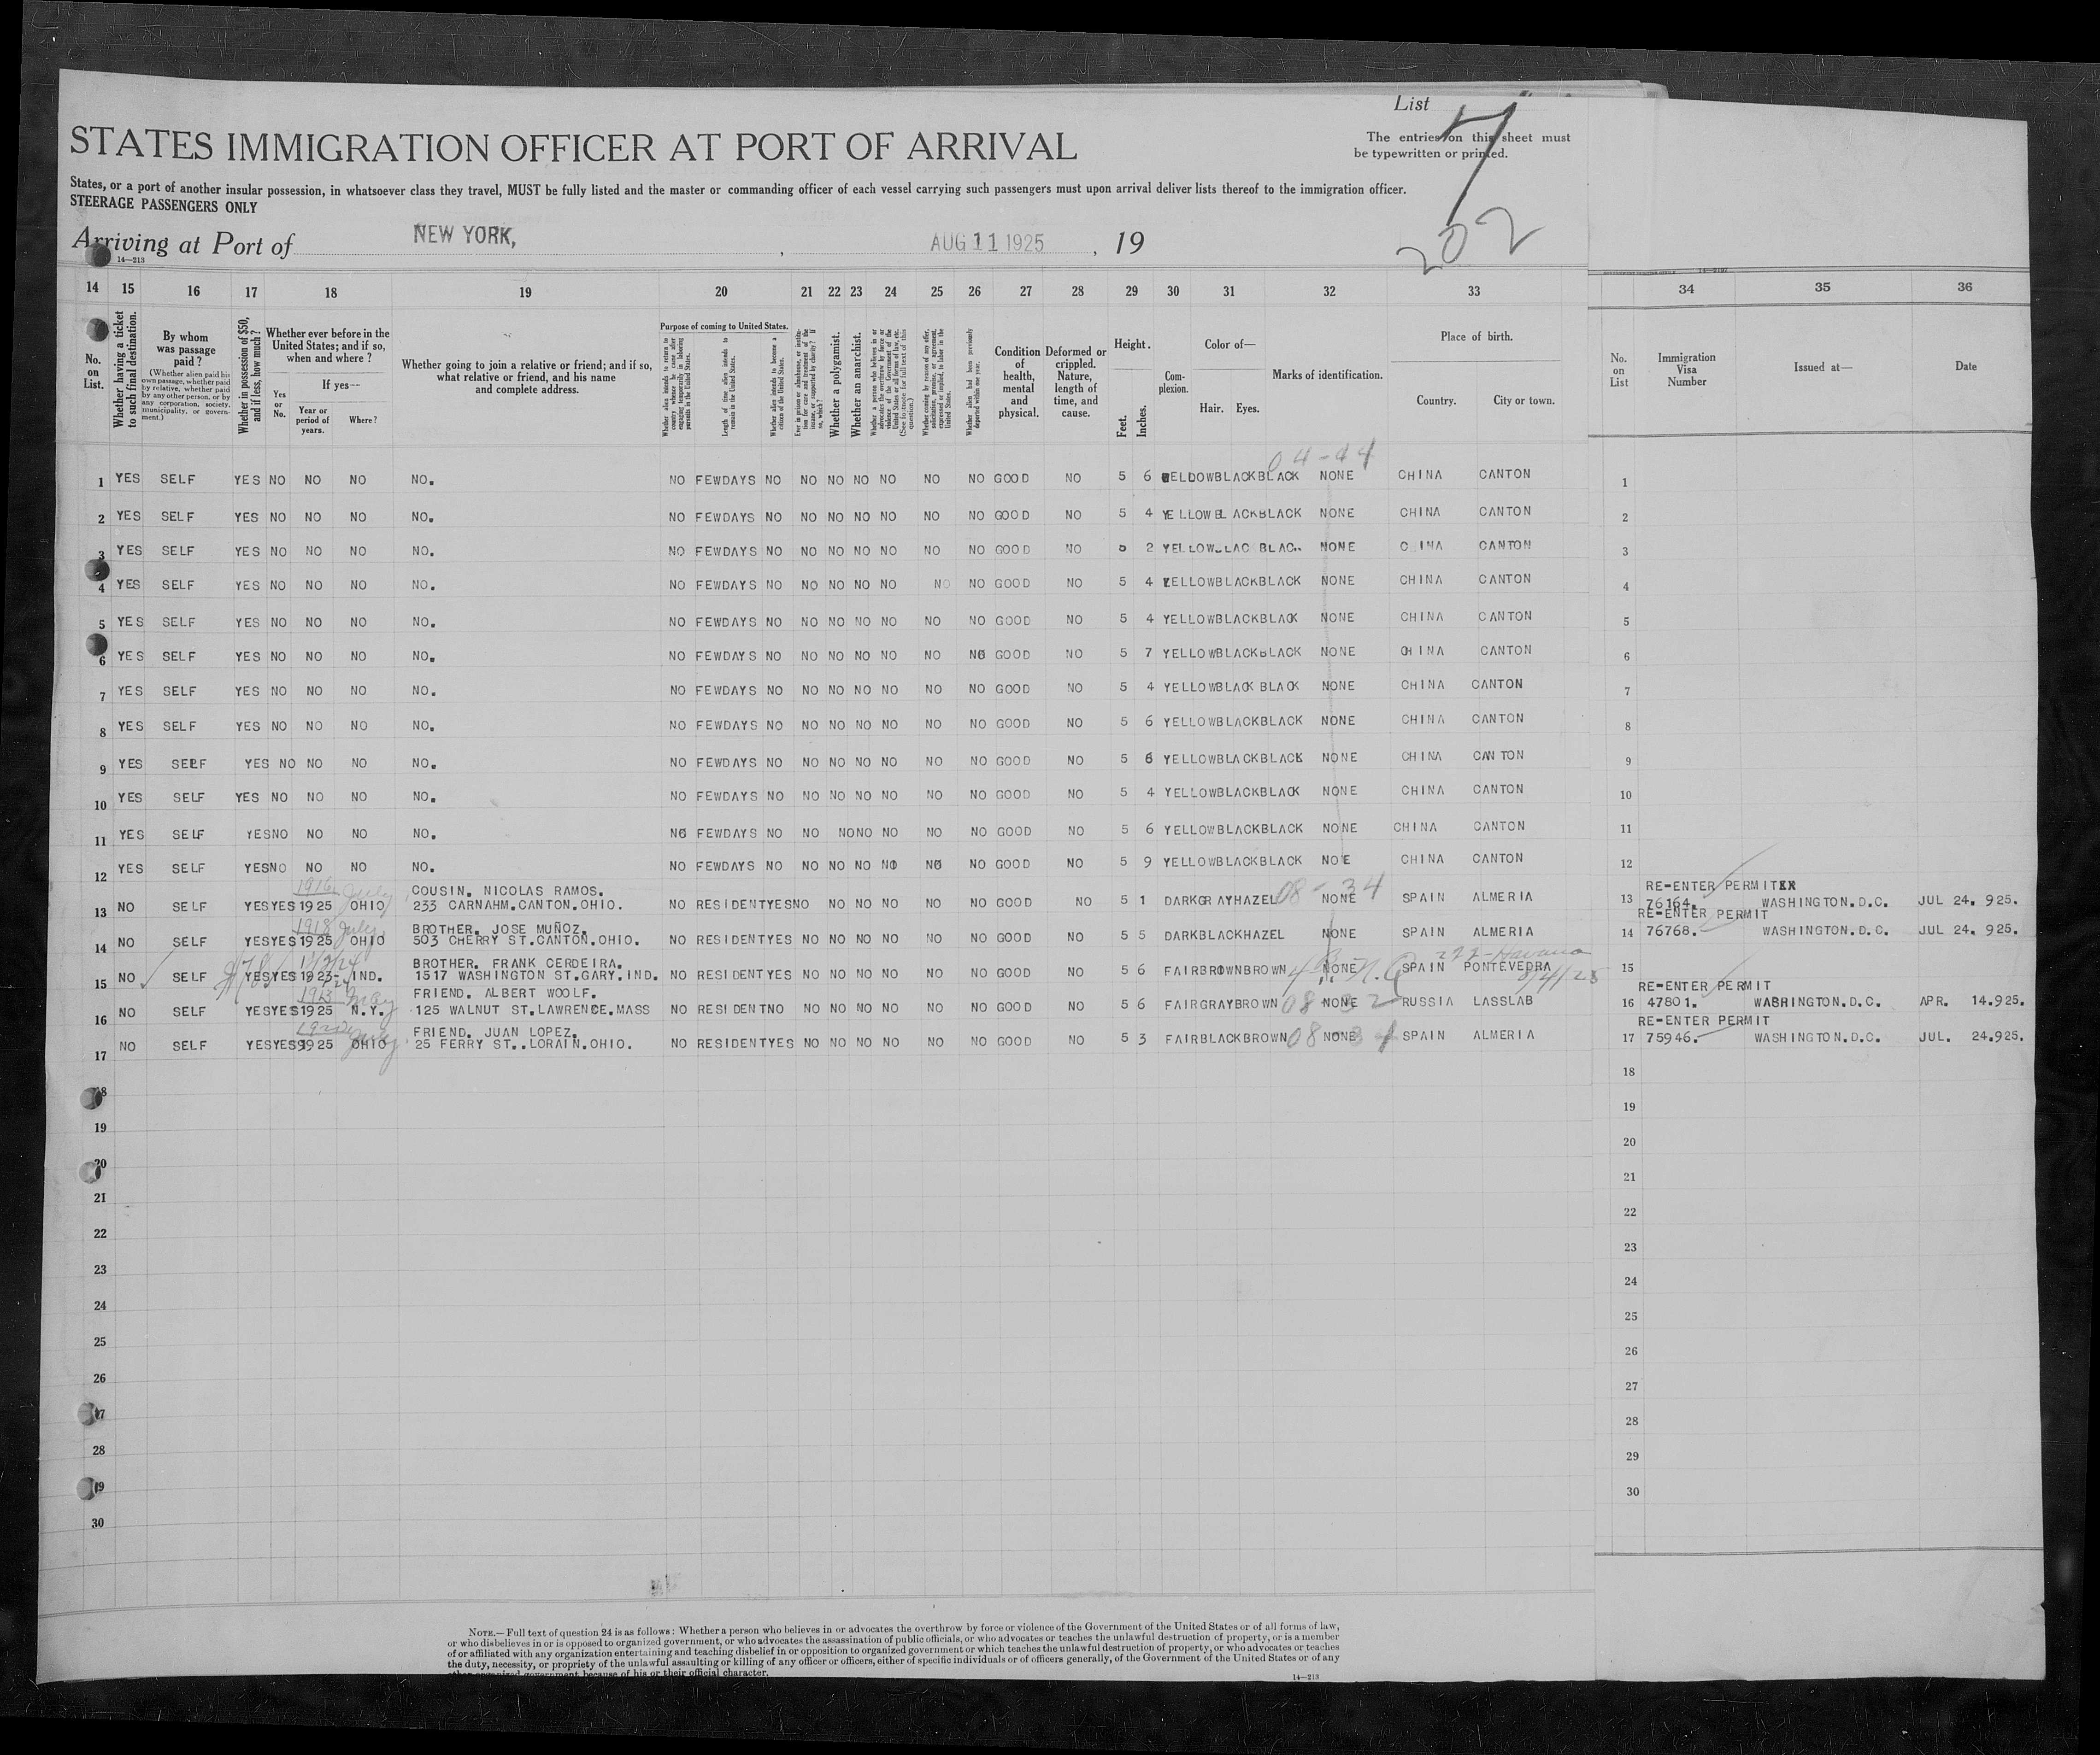 List
7
The entries on this sheet must
be typewritten or printed.
STATES IMMIGRATION OFFICER AT PORT OF ARRIVAL
States, or a port of another insular possession, in whatsoever class they travel, MUST be fully listed and the master or commanding officer of each vessel carrying such passengers must upon arrival deliver lists thereof to the immigration officer.
STEERAGE PASSENGERS ONLY
Arriving at Port of NEW YORK, , AUG 11 1925 , 19
202
14—213
14 15 16 17 18 19 20 21 22 23 24 25 26 27 28 29 30 31 32 33 34 35 36
No. on List.
Whether having a ticket to such final destination.
By whom was passage paid?
(Whether alien paid his own passage, whether paid by relative, whether paid by any other person, or by any corporation, society, municipality, or government.)
Whether in possession of $50, and if less, how much?
Whether ever before in the United States; and if so, when and where?
Yes or No.
If yes—
Year or period of years.
Where?
Whether going to join a relative or friend; and if so, what relative or friend, and his name and complete address.
Purpose of coming to United States.
Whether alien intends to return to country whence he came after engaging temporarily in laboring pursuits in the United States.
Length of time alien intends to remain in the United States.
Whether alien intends to become a citizen of the United States.
Ever in prison or almshouse, or institution for care and treatment of the insane, or supported by charity? If so, which?
Whether a polygamist.
Whether an anarchist.
Whether a person who believes in or advocates the overthrow by force or violence of the Government of the United States or all forms of law, etc. (See footnote for full text of this question.)
Whether coming by reason of any offer, solicitation, promise, or agreement, expressed or implied, to labor in the United States.
Whether alien had been previously deported within one year.
Condition of health, mental and physical.
Deformed or crippled. Nature, length of time, and cause.
Height.
Feet. Inches.
Complexion.
Color of—
Hair. Eyes.
Marks of identification.
Place of birth.
Country. City or town.
No. on List
Immigration Visa Number
Issued at—
Date
04-44
1 YES SELF YES NO NO NO NO. NO FEWDAYS NO NO NO NO NO NO NO GOOD NO 5 6 YELLOWBLACKBLACK NONE CHINA CANTON 1
2 YES SELF YES NO NO NO NO. NO FEWDAYS NO NO NO NO NO NO NO GOOD NO 5 4 YELLOWBLACKBLACK NONE CHINA CANTON 2
3 YES SELF YES NO NO NO NO. NO FEWDAYS NO NO NO NO NO NO NO GOOD NO 5 2 YELLOW NONE CANTON 3
4 YES SELF YES NO NO NO NO. NO FEWDAYS NO NO NO NO NO NO NO GOOD NO 5 4 YELLOWBLACKBLACK NONE CHINA CANTON 4
5 YES SELF YES NO NO NO NO. NO FEWDAYS NO NO NO NO NO NO NO GOOD NO 5 4 YELLOWBLACKBLACK NONE CHINA CANTON 5
6 YES SELF YES NO NO NO NO. NO FEWDAYS NO NO NO NO NO NO NO GOOD NO 5 7 YELLOWBLACKBLACK NONE CHINA CANTON 6
7 YES SELF YES NO NO NO NO. NO FEWDAYS NO NO NO NO NO NO NO GOOD NO 5 4 YELLOWBLACK BLACK NONE CHINA CANTON 7
8 YES SELF YES NO NO NO NO. NO FEWDAYS NO NO NO NO NO NO NO GOOD NO 5 6 YELLOWBLACKBLACK NONE CHINA CANTON 8
9 YES SELF YES NO NO NO NO. NO FEWDAYS NO NO NO NO NO NO NO GOOD NO 5 6 YELLOWBLACKBLACK NONE CHINA CANTON 9
10 YES SELF YES NO NO NO NO. NO FEWDAYS NO NO NO NO NO NO NO GOOD NO 5 4 YELLOWBLACKBLACK NONE CHINA CANTON 10
11 YES SELF YESNO NO NO NO. NO FEWDAYS NO NO NONO NO NO NO GOOD NO 5 6 YELLOWBLACKBLACK NONE CHINA CANTON 11
12 YES SELF YESNO NO NO NO. NO FEWDAYS NO NO NO NO NO NO NO GOOD NO 5 9 YELLOWBLACKBLACK NO E CHINA CANTON 12
1916 July COUSIN. NICOLAS RAMOS. 08-34 RE-ENTER PERMITXX
13 NO SELF YESYES1925 OHIO 233 CARNAHM.CANTON.OHIO. NO RESIDENTYESNO NO NO NO NO NO GOOD NO 5 1 DARKGRAYHAZEL NONE SPAIN ALMERIA 13 76164. WASHINGTON.D.C. JUL 24. 925.
1918 July BROTHER. JOSE MUÑOZ. RE-ENTER PERMIT
14 NO SELF YESYES1925 OHIO 503 CHERRY ST.CANTON.OHIO. NO RESIDENTYES NO NO NO NO NO NO GOOD NO 5 5 DARKBLACKHAZEL NONE SPAIN ALMERIA 14 76768. WASHINGTON.D.C. JUL 24. 925.
BROTHER. FRANK CERDEIRA. Havana
15 NO SELF YESYES1923-24 IND. 1517 WASHINGTON ST.GARY.IND. NO RESIDENTYES NO NO NO NO NO NO GOOD NO 5 6 FAIRBROWNBROWN NONE SPAIN PONTEVEDRA 8/4/25 15
1913 May FRIEND. ALBERT WOOLF. RE-ENTER PERMIT
16 NO SELF YESYES1925 N.Y. 125 WALNUT ST.LAWRENCE.MASS NO RESIDENTNO NO NO NO NO NO NO GOOD NO 5 6 FAIRGRAYBROWN 08 NONE 2 RUSSIA LASSLAB 16 47801. WASHINGTON.D.C. APR. 14.925.
FRIEND. JUAN LOPEZ. RE-ENTER PERMIT
17 NO SELF YESYES1925 OHIO 25 FERRY ST..LORAIN.OHIO. NO RESIDENTYES NO NO NO NO NO NO GOOD NO 5 3 FAIRBLACKBROWN 08-34 NONE SPAIN ALMERIA 17 75946. WASHINGTON.D.C. JUL. 24.925.
18 18
19 19
20 20
21 21
22 22
23 23
24 24
25 25
26 26
27 27
28 28
29 29
30 30
NOTE.—Full text of question 24 is as follows: Whether a person who believes in or advocates the overthrow by force or violence of the Government of the United States or of all forms of law,
or who disbelieves in or is opposed to organized government, or who advocates the assassination of public officials, or who advocates or teaches the unlawful destruction of property, or is a member
of or affiliated with any organization entertaining and teaching disbelief in or opposition to organized government or which teaches the unlawful destruction of property, or who advocates or teaches
the duty, necessity, or propriety of the unlawful assaulting or killing of any officer or officers, either of specific individuals or of officers generally, of the Government of the United States or of any
other organized government because of his or their official character.
14—213